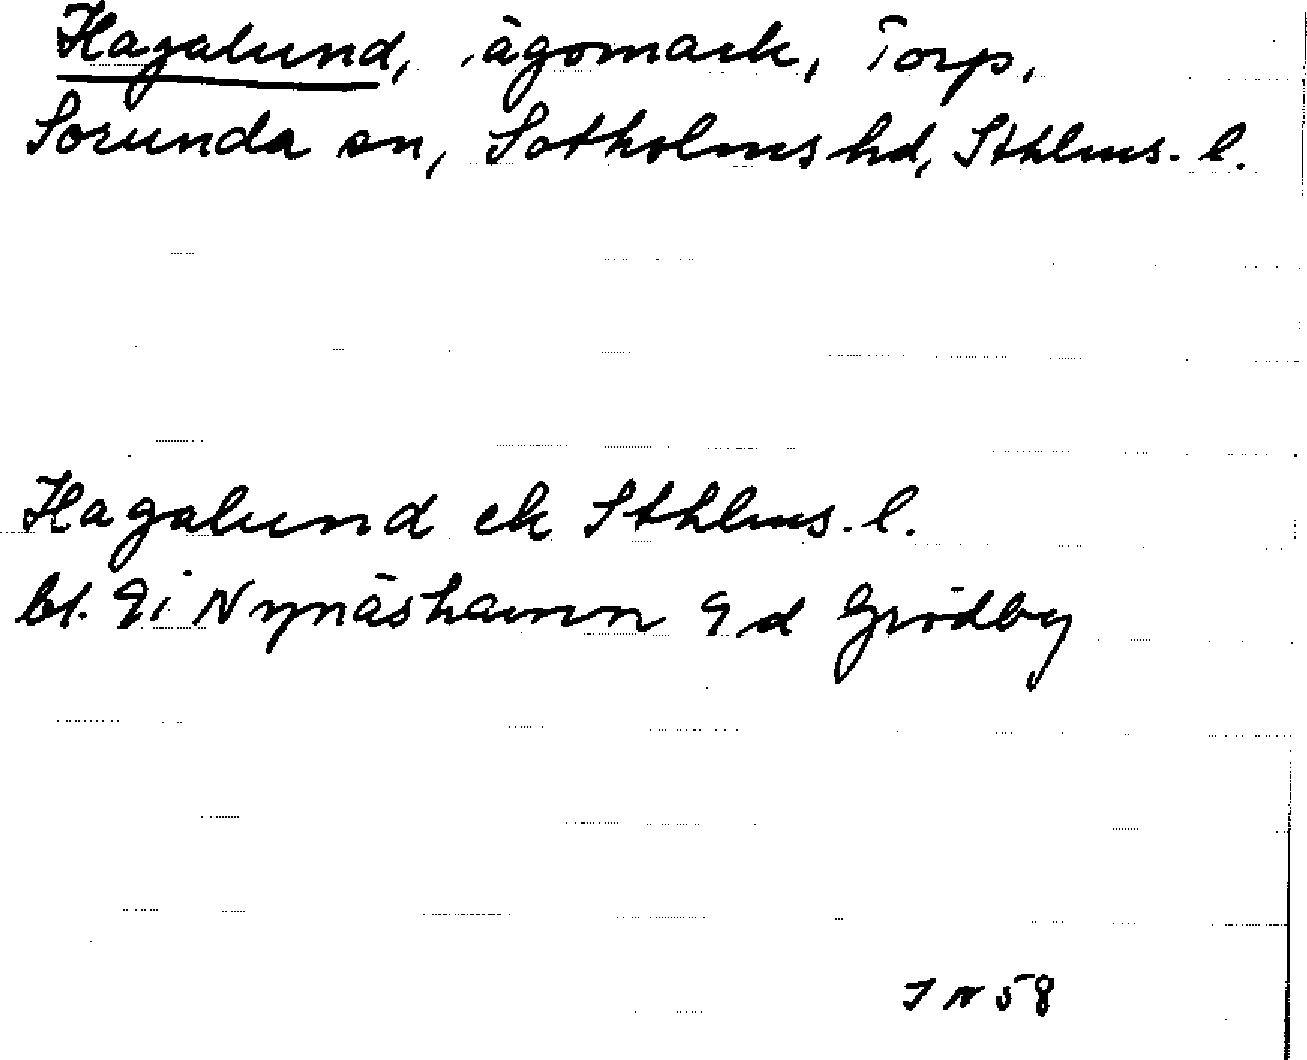 Hagalund, ägomark, Torp,
Sorunda sn, Sotholms hd, Sthlms. l.
Hagalund ek Sthlms. l.
bl. 9i Nynäshamn 9d Grödby
IN 58